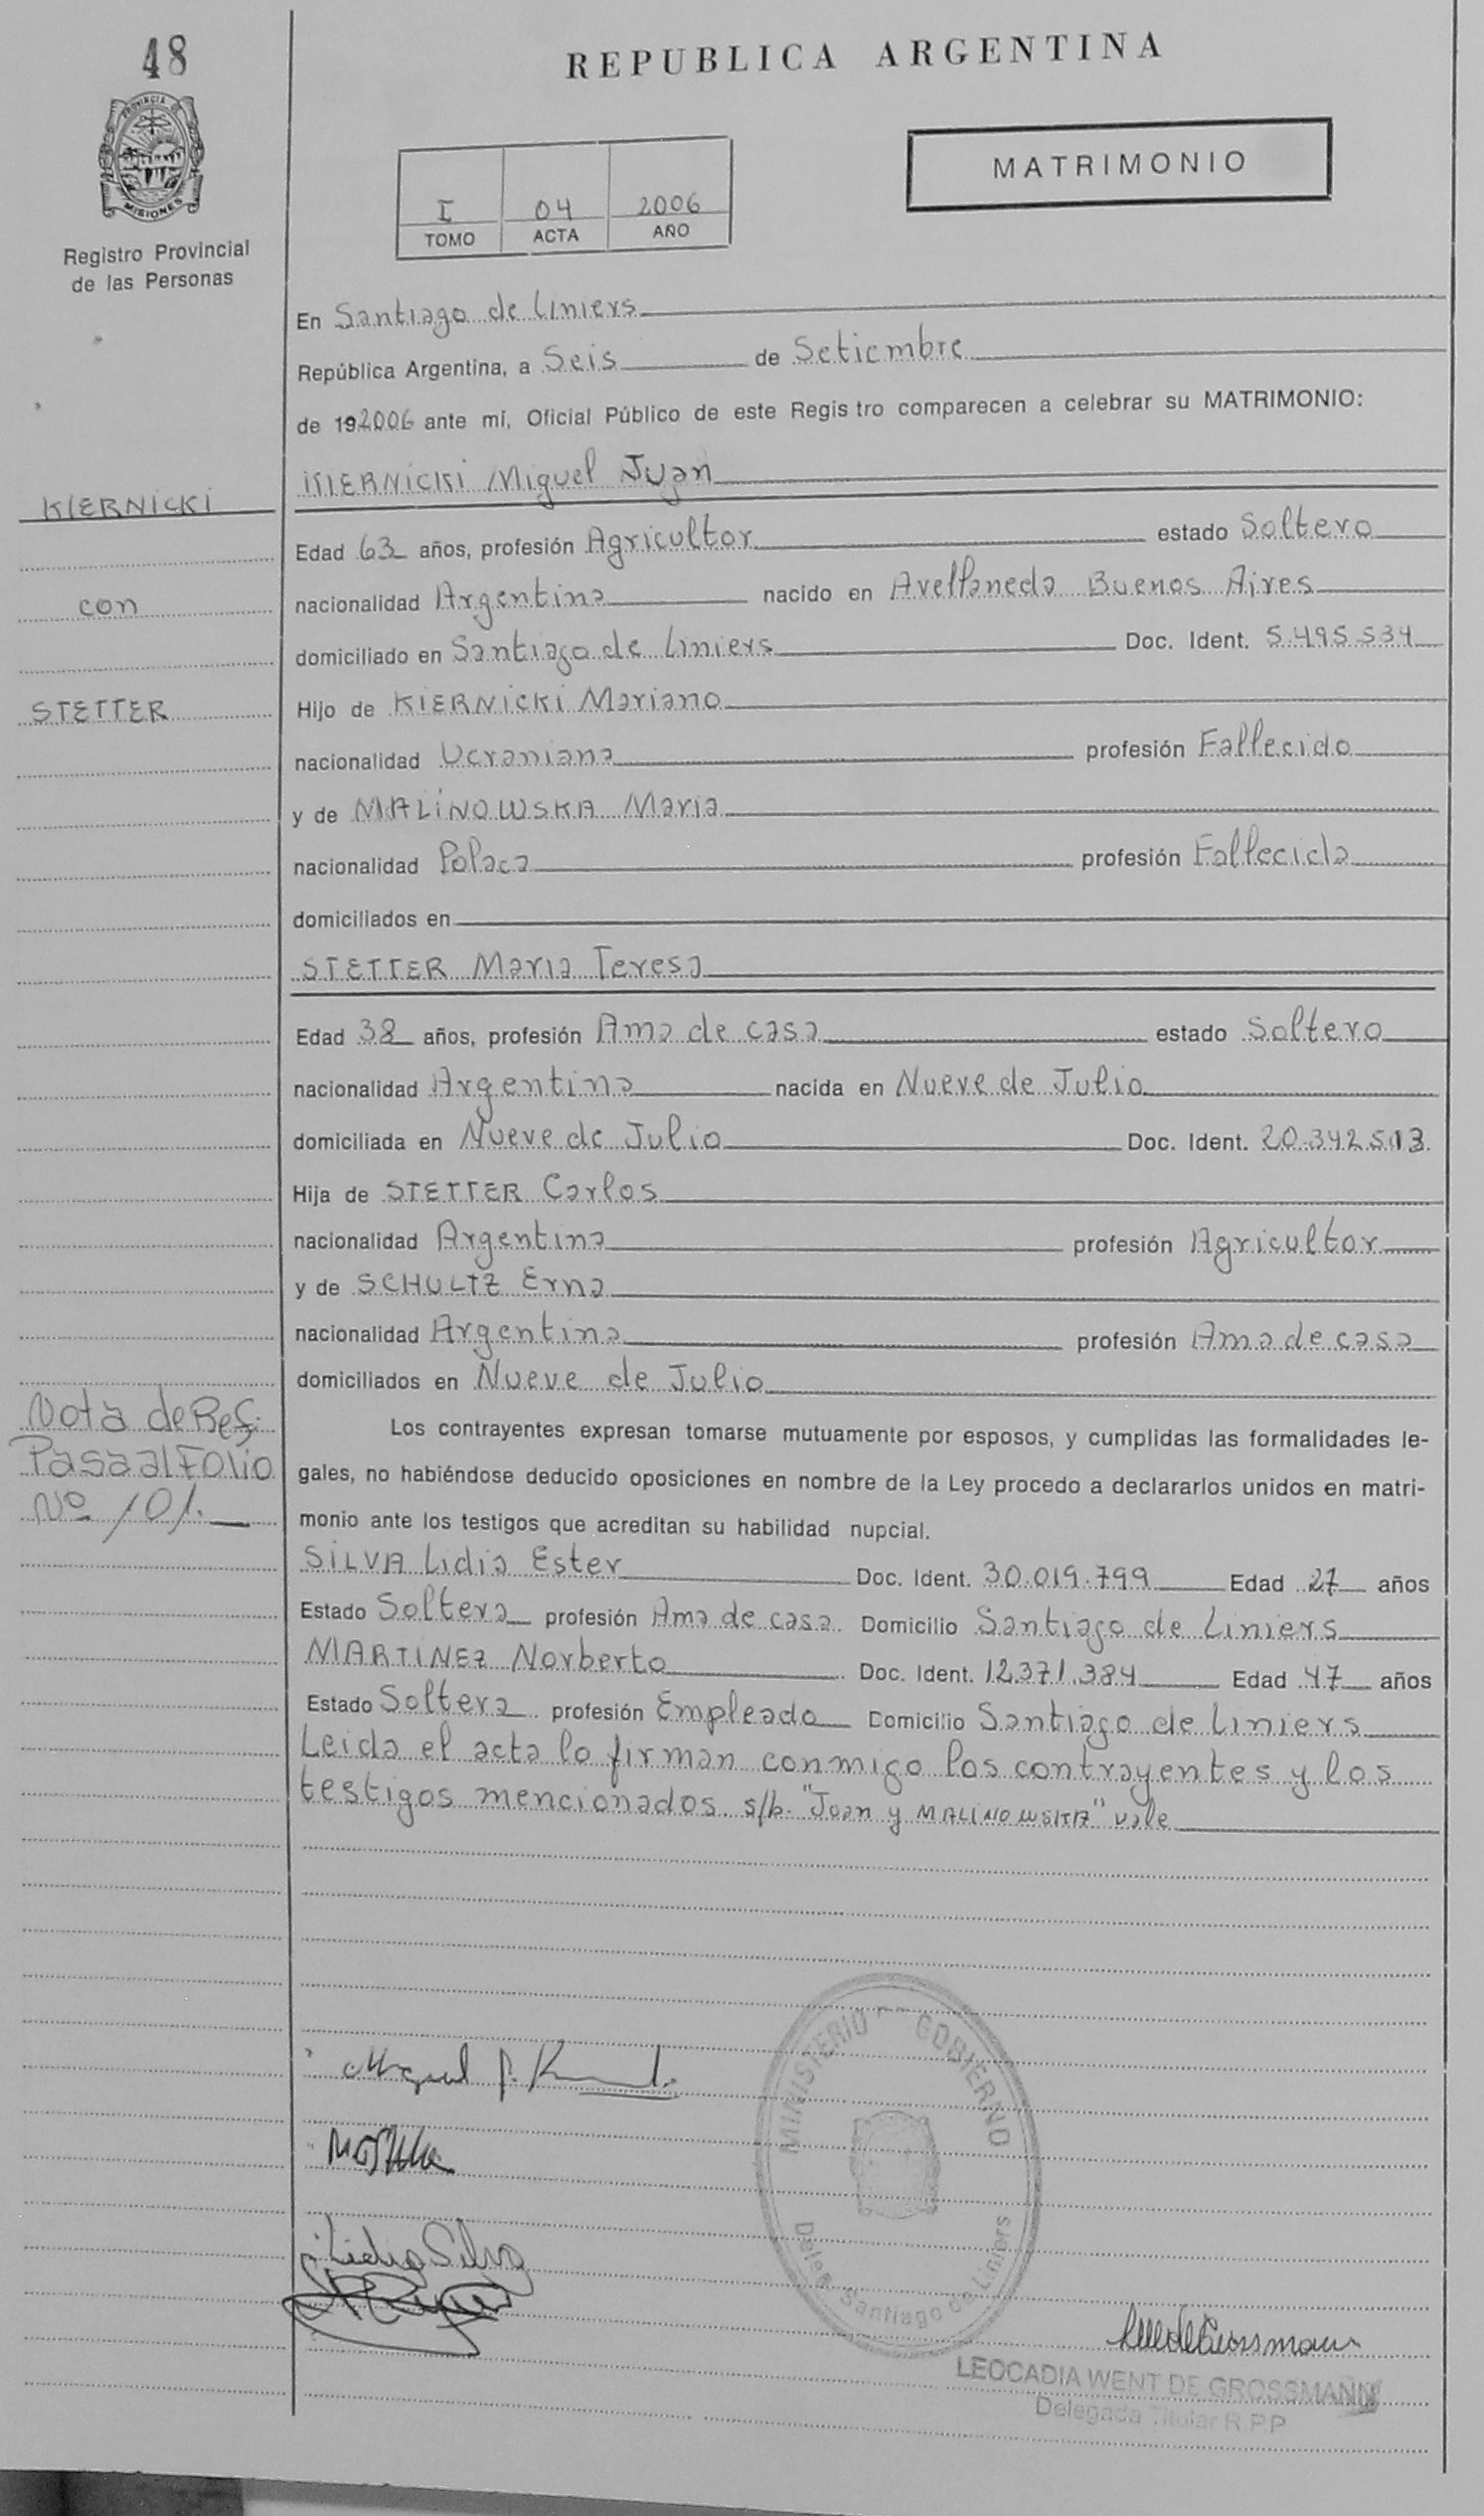 48
REPUBLICA ARGENTINA
PROVINCIA DE
MISIONES
Registro Provincial
de las Personas
MATRIMONIO
I 04 2006
TOMO ACTA AÑO
En Santiago de Liniers
República Argentina, a Seis de Setiembre
de 192006 ante mí, Oficial Público de este Registro comparecen a celebrar su MATRIMONIO:
KIERNICKI Miguel Juan
KIERNICKI
con
STETTER
Edad 63 años, profesión Agricultor estado Soltero
nacionalidad Argentina nacido en Avellaneda Buenos Aires
domiciliado en Santiago de Liniers Doc. Ident. 5.495.534
Hijo de KIERNICKI Mariano
nacionalidad Ucraniana profesión Fallecido
y de MALINOWSKA Maria
nacionalidad Polaca profesión Fallecida
domiciliados en
STETTER Maria Teresa
Edad 38 años, profesión Ama de casa estado Soltero
nacionalidad Argentina nacida en Nueve de Julio
domiciliada en Nueve de Julio Doc. Ident. 20.342.513
Hija de STETTER Carlos
nacionalidad Argentina profesión Agricultor
y de SCHULTZ Erna
nacionalidad Argentina profesión Ama de casa
domiciliados en Nueve de Julio
Nota de Ref.
Pasa al Folio
Nº 101.
Los contrayentes expresan tomarse mutuamente por esposos, y cumplidas las formalidades le-
gales, no habiéndose deducido oposiciones en nombre de la Ley procedo a declararlos unidos en matri-
monio ante los testigos que acreditan su habilidad nupcial.
SILVA Lidia Ester Doc. Ident. 30.019.799 Edad 27 años
Estado Soltera profesión Ama de casa Domicilio Santiago de Liniers
MARTINEZ Norberto Doc. Ident. 12.371.384 Edad 47 años
Estado Soltera profesión Empleado Domicilio Santiago de Liniers
Leida el acta lo firman conmigo los contrayentes y los
testigos mencionados. s/b. "Juan y MALINOWSKA" vale
Miguel J.
Lidia Silva
MINISTERIO GOBIERNO
Deleg. Santiago de Liniers
LEOCADIA WENT DE GROSSMANN
Delegada Titular R.P.P